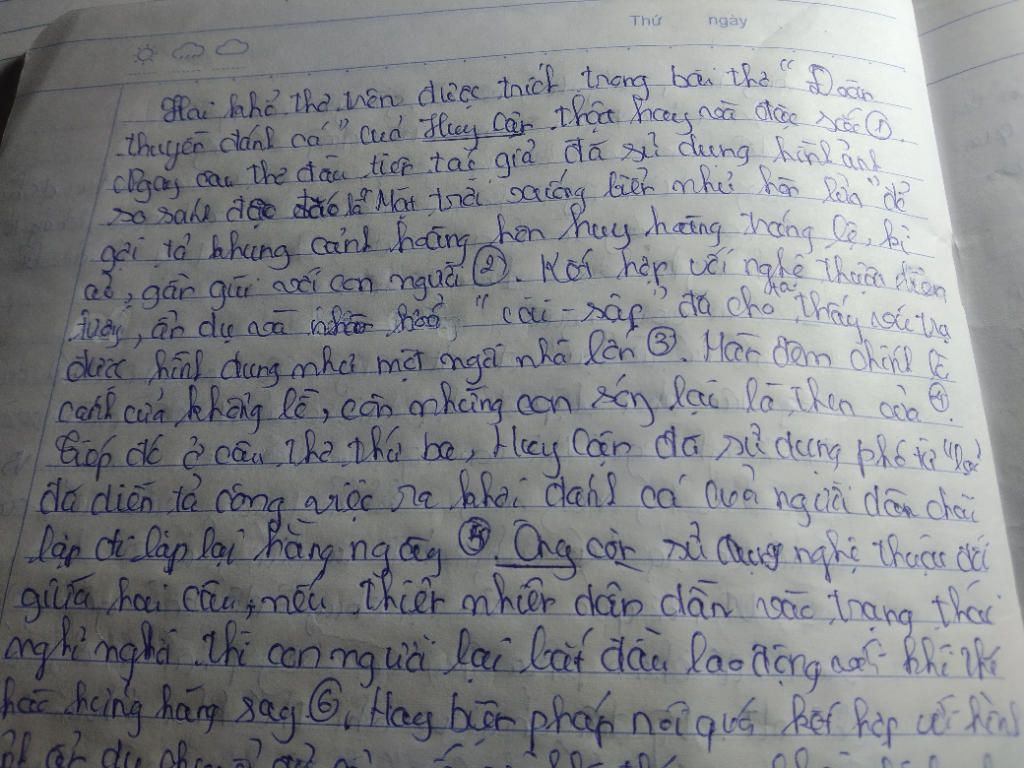 Thứ ngày
Hai khổ thơ trên được trích trong bài thơ "Đoàn
thuyền đánh cá" của Huy Cận thật hay và đặc sắc ①.
Ngay câu thơ đầu tiên tác giả đã sử dụng hình ảnh
so sánh độc đáo là "Mặt trời xuống biển như hòn lửa" để
gợi tả khung cảnh hoàng hôn huy hoàng tráng lệ, kì
ảo, gần gũi với con người ②. Kết hợp với nghệ thuật liên
tưởng, ẩn dụ và nhân hóa "cài - sập" đã cho ta thấy vũ trụ
được hình dung như một ngôi nhà lớn ③. Màn đêm chính là
cánh cửa khổng lồ, còn những con sóng lại là then cửa ④.
Tiếp đó ở câu thơ thứ ba, Huy Cận đã sử dụng phó từ "lại"
đã diễn tả công việc ra khơi đánh cá của người dân chài
lặp đi lặp lại hằng ngày ⑤. Ông còn sử dụng nghệ thuật đối
giữa hai câu, nếu thiên nhiên dần dần vào trạng thái
nghỉ ngơi thì con người lại bắt đầu lao động với khí thế
hào hứng hăng say ⑥. Hay biện pháp nói quá kết hợp với hình